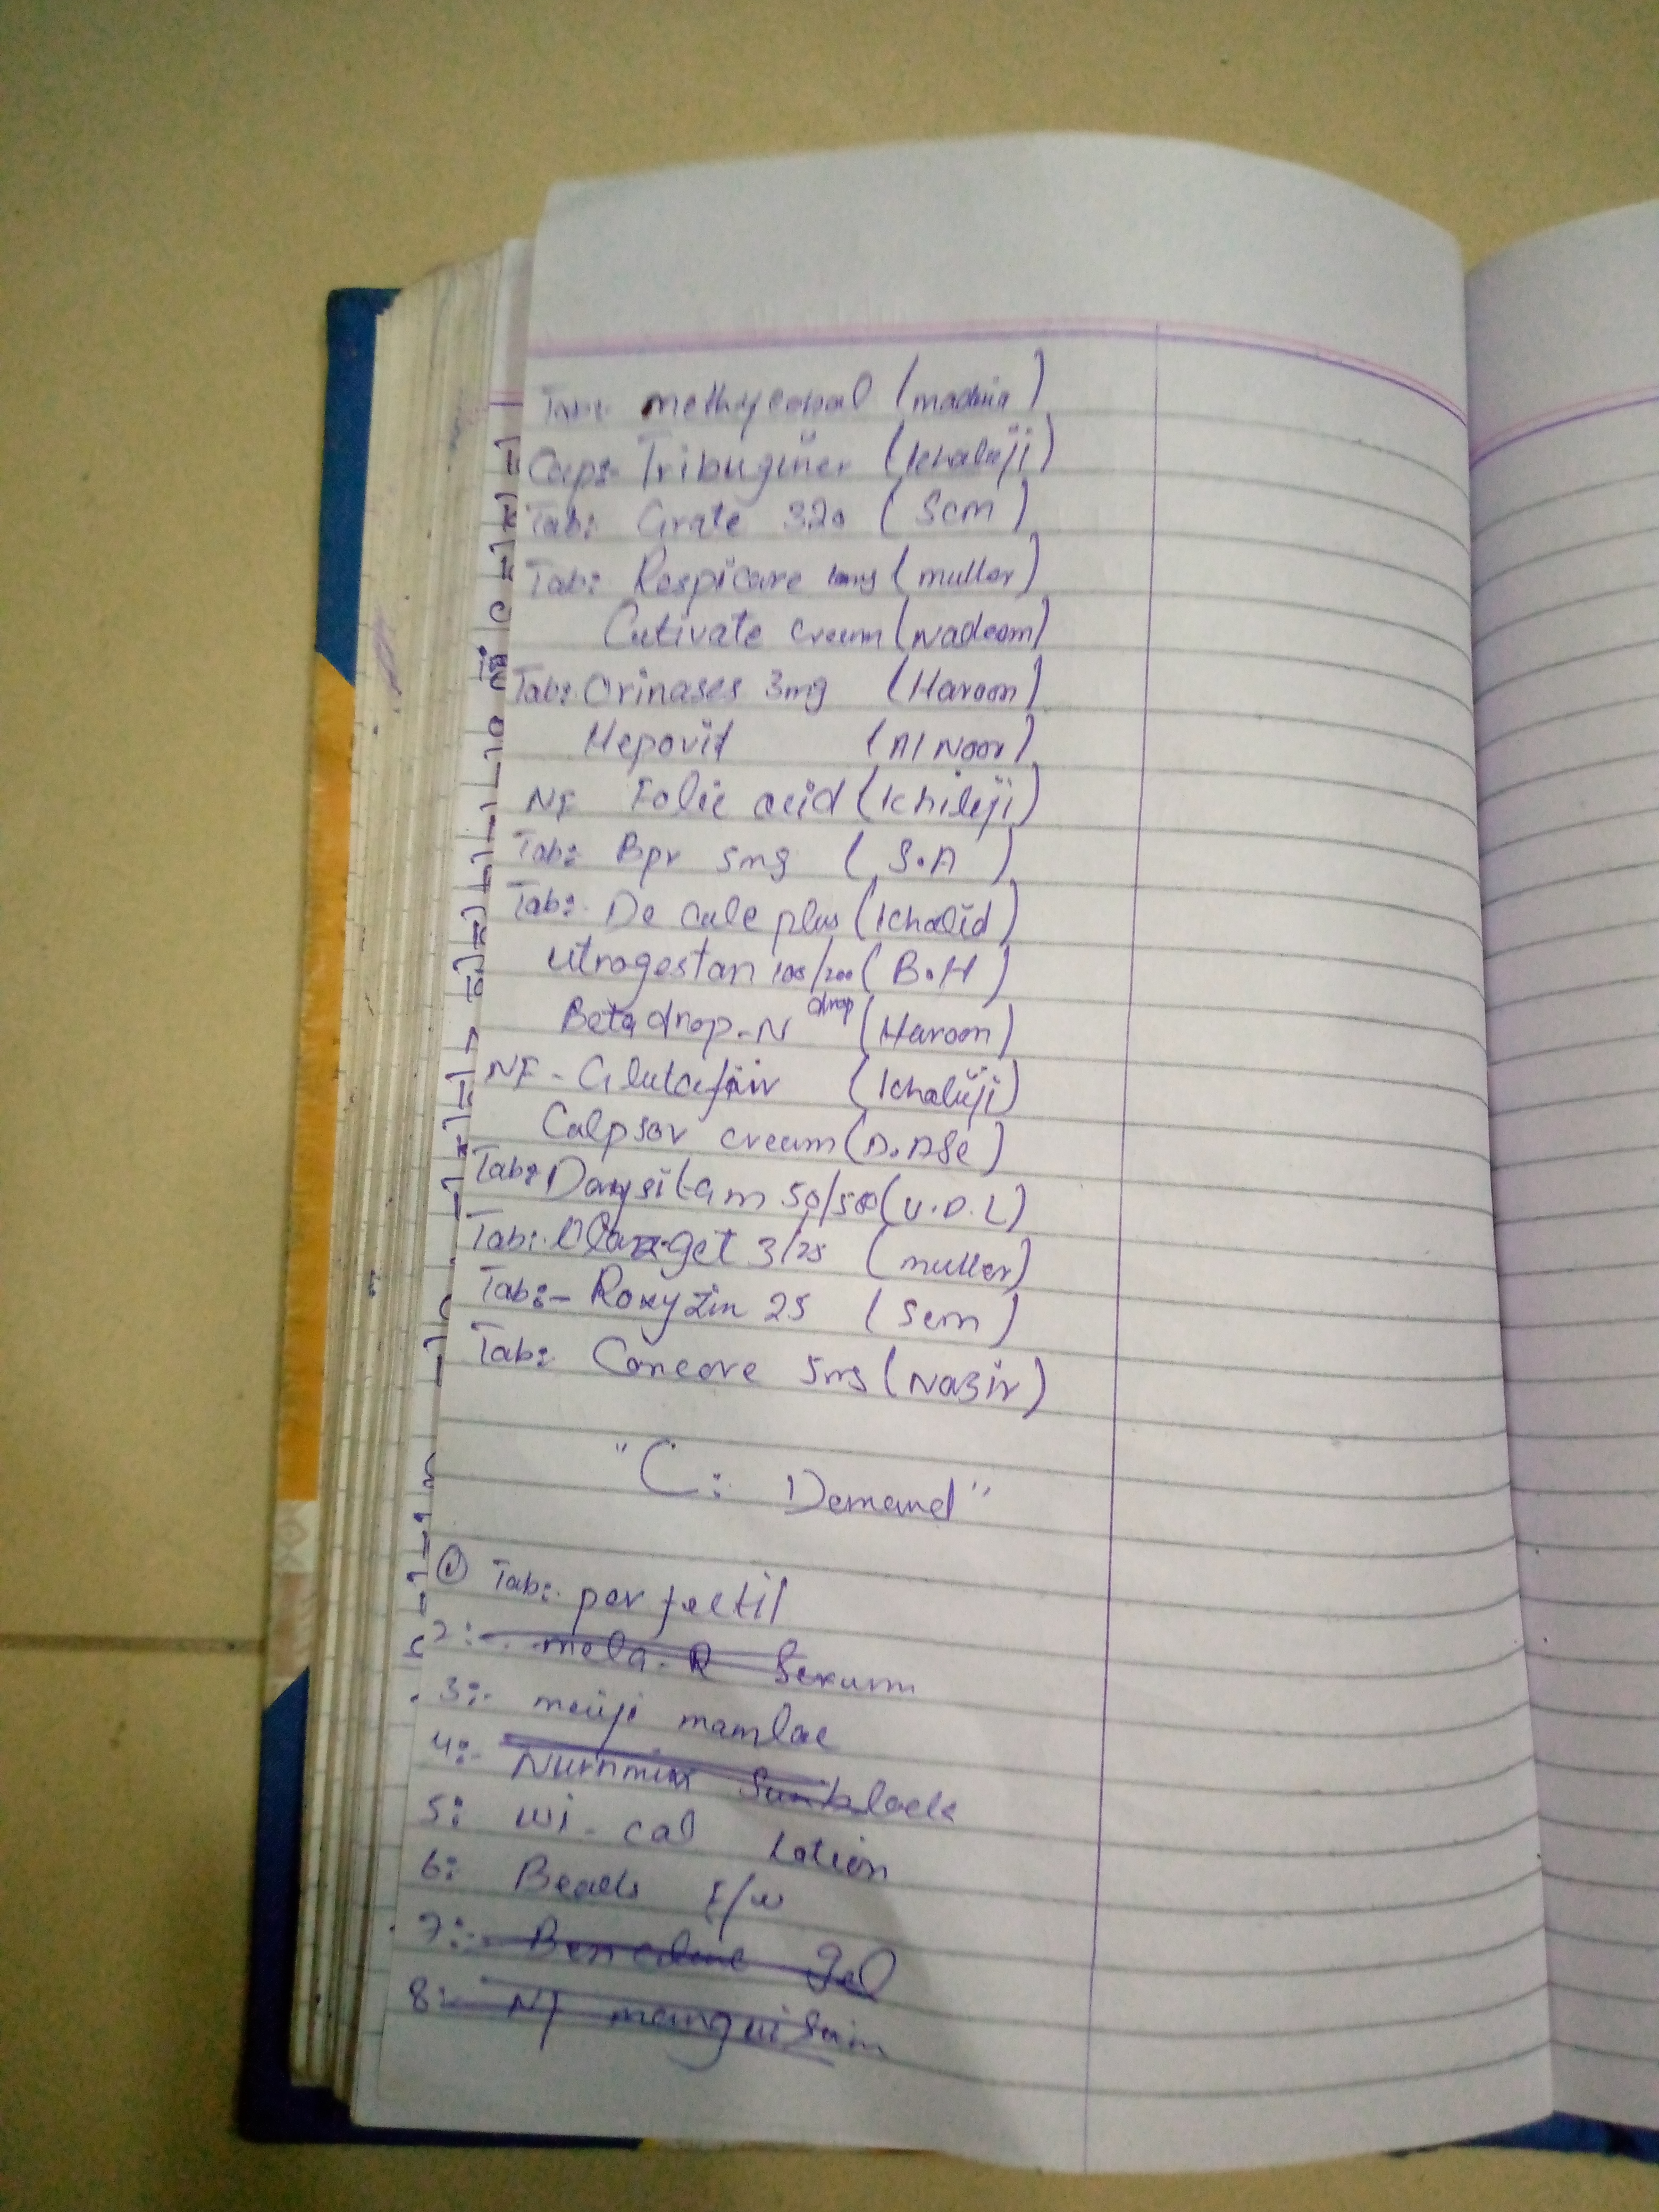 Tab:- methycobal (madina)
Cap:- Tribuginer (Khaliji)
Tab: Grate 320 (Scm)
Tab: Respicare 10mg (muller)
Cutivate cream (Nadeem)
Tab: Orinases 3mg (Haroon)
Hepovit (Al Noor)
NF Folic acid (Khiliji)
Tab: Bpr 5mg (S.A)
Tab:- De cale plus (Khalid)
utrogestan 100/200 (B.H)
Betadrop-N drop (Haroon)
NF - Glutafair (Khaliji)
Calpsor cream (D.ASe)
Tab: 50/500 (U.D.L)
Tab:- get 3/25 (muller)
Tab:- Roxyzin 25 (Scm)
Tab: Concore 5mg (Nazir)
"C: Demand"
① Tab:- perfectil
2:- mela-R Serum
3:- meiji mamlac
4:- Sunblock
5: wi-cal Lotion
6: Beads F/w
7:- Gel
8:- NF